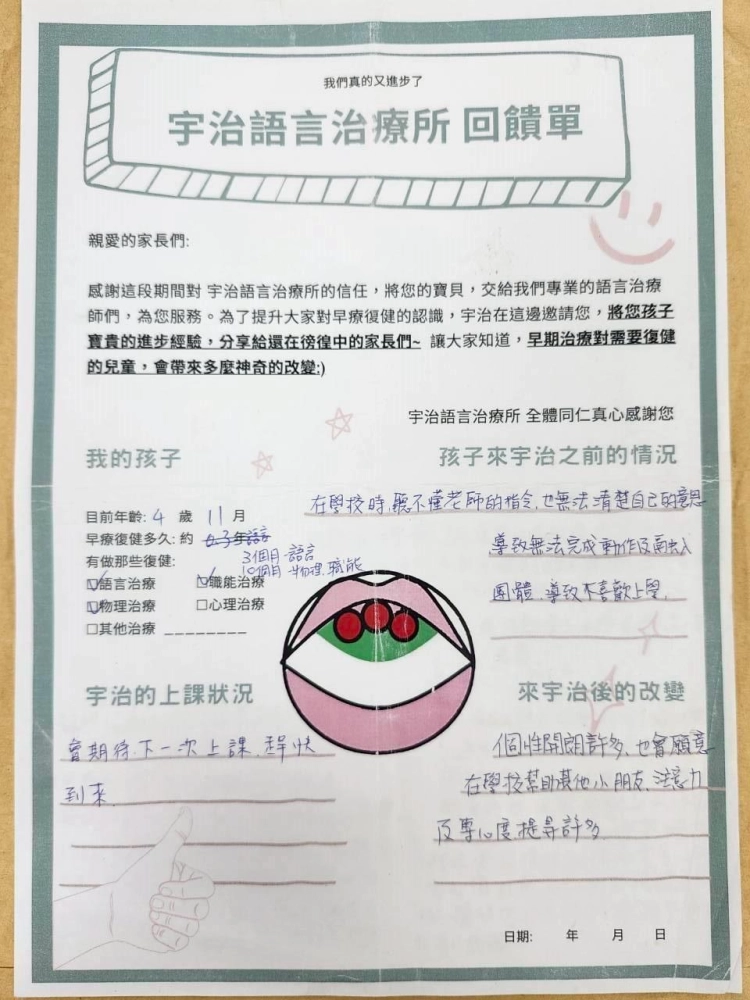 我們真的又進步了
宇治語言治療所 回饋單
親愛的家長們:
感謝這段期間對 宇治語言治療所的信任，將您的寶貝，交給我們專業的語言治療
師們，為您服務。為了提升大家對早療復健的認識，宇治在這邊邀請您，將您孩子
寶貴的進步經驗，分享給還在徬徨中的家長們~ 讓大家知道，早期治療對需要復健
的兒童，會帶來多麼神奇的改變:)
宇治語言治療所 全體同仁真心感謝您
我的孩子
目前年齡: 4 歲 11 月
早療復健多久: 約
3個月 語言
有做那些復健:
10個月 物理、職能
☑語言治療 ☑職能治療
☑物理治療 □心理治療
□其他治療 ________
孩子來宇治之前的情況
在學校時,聽不懂老師的指令,也無法清楚自己的意思
導致無法完成動作及融入
團體、導致不喜歡上學,
宇治的上課狀況
會期待下一次上課、趕快
到來
來宇治後的改變
個性開朗許多,也會願意
在學校幫助其他小朋友、注意力
及專心度提昇許多
日期: 年 月 日